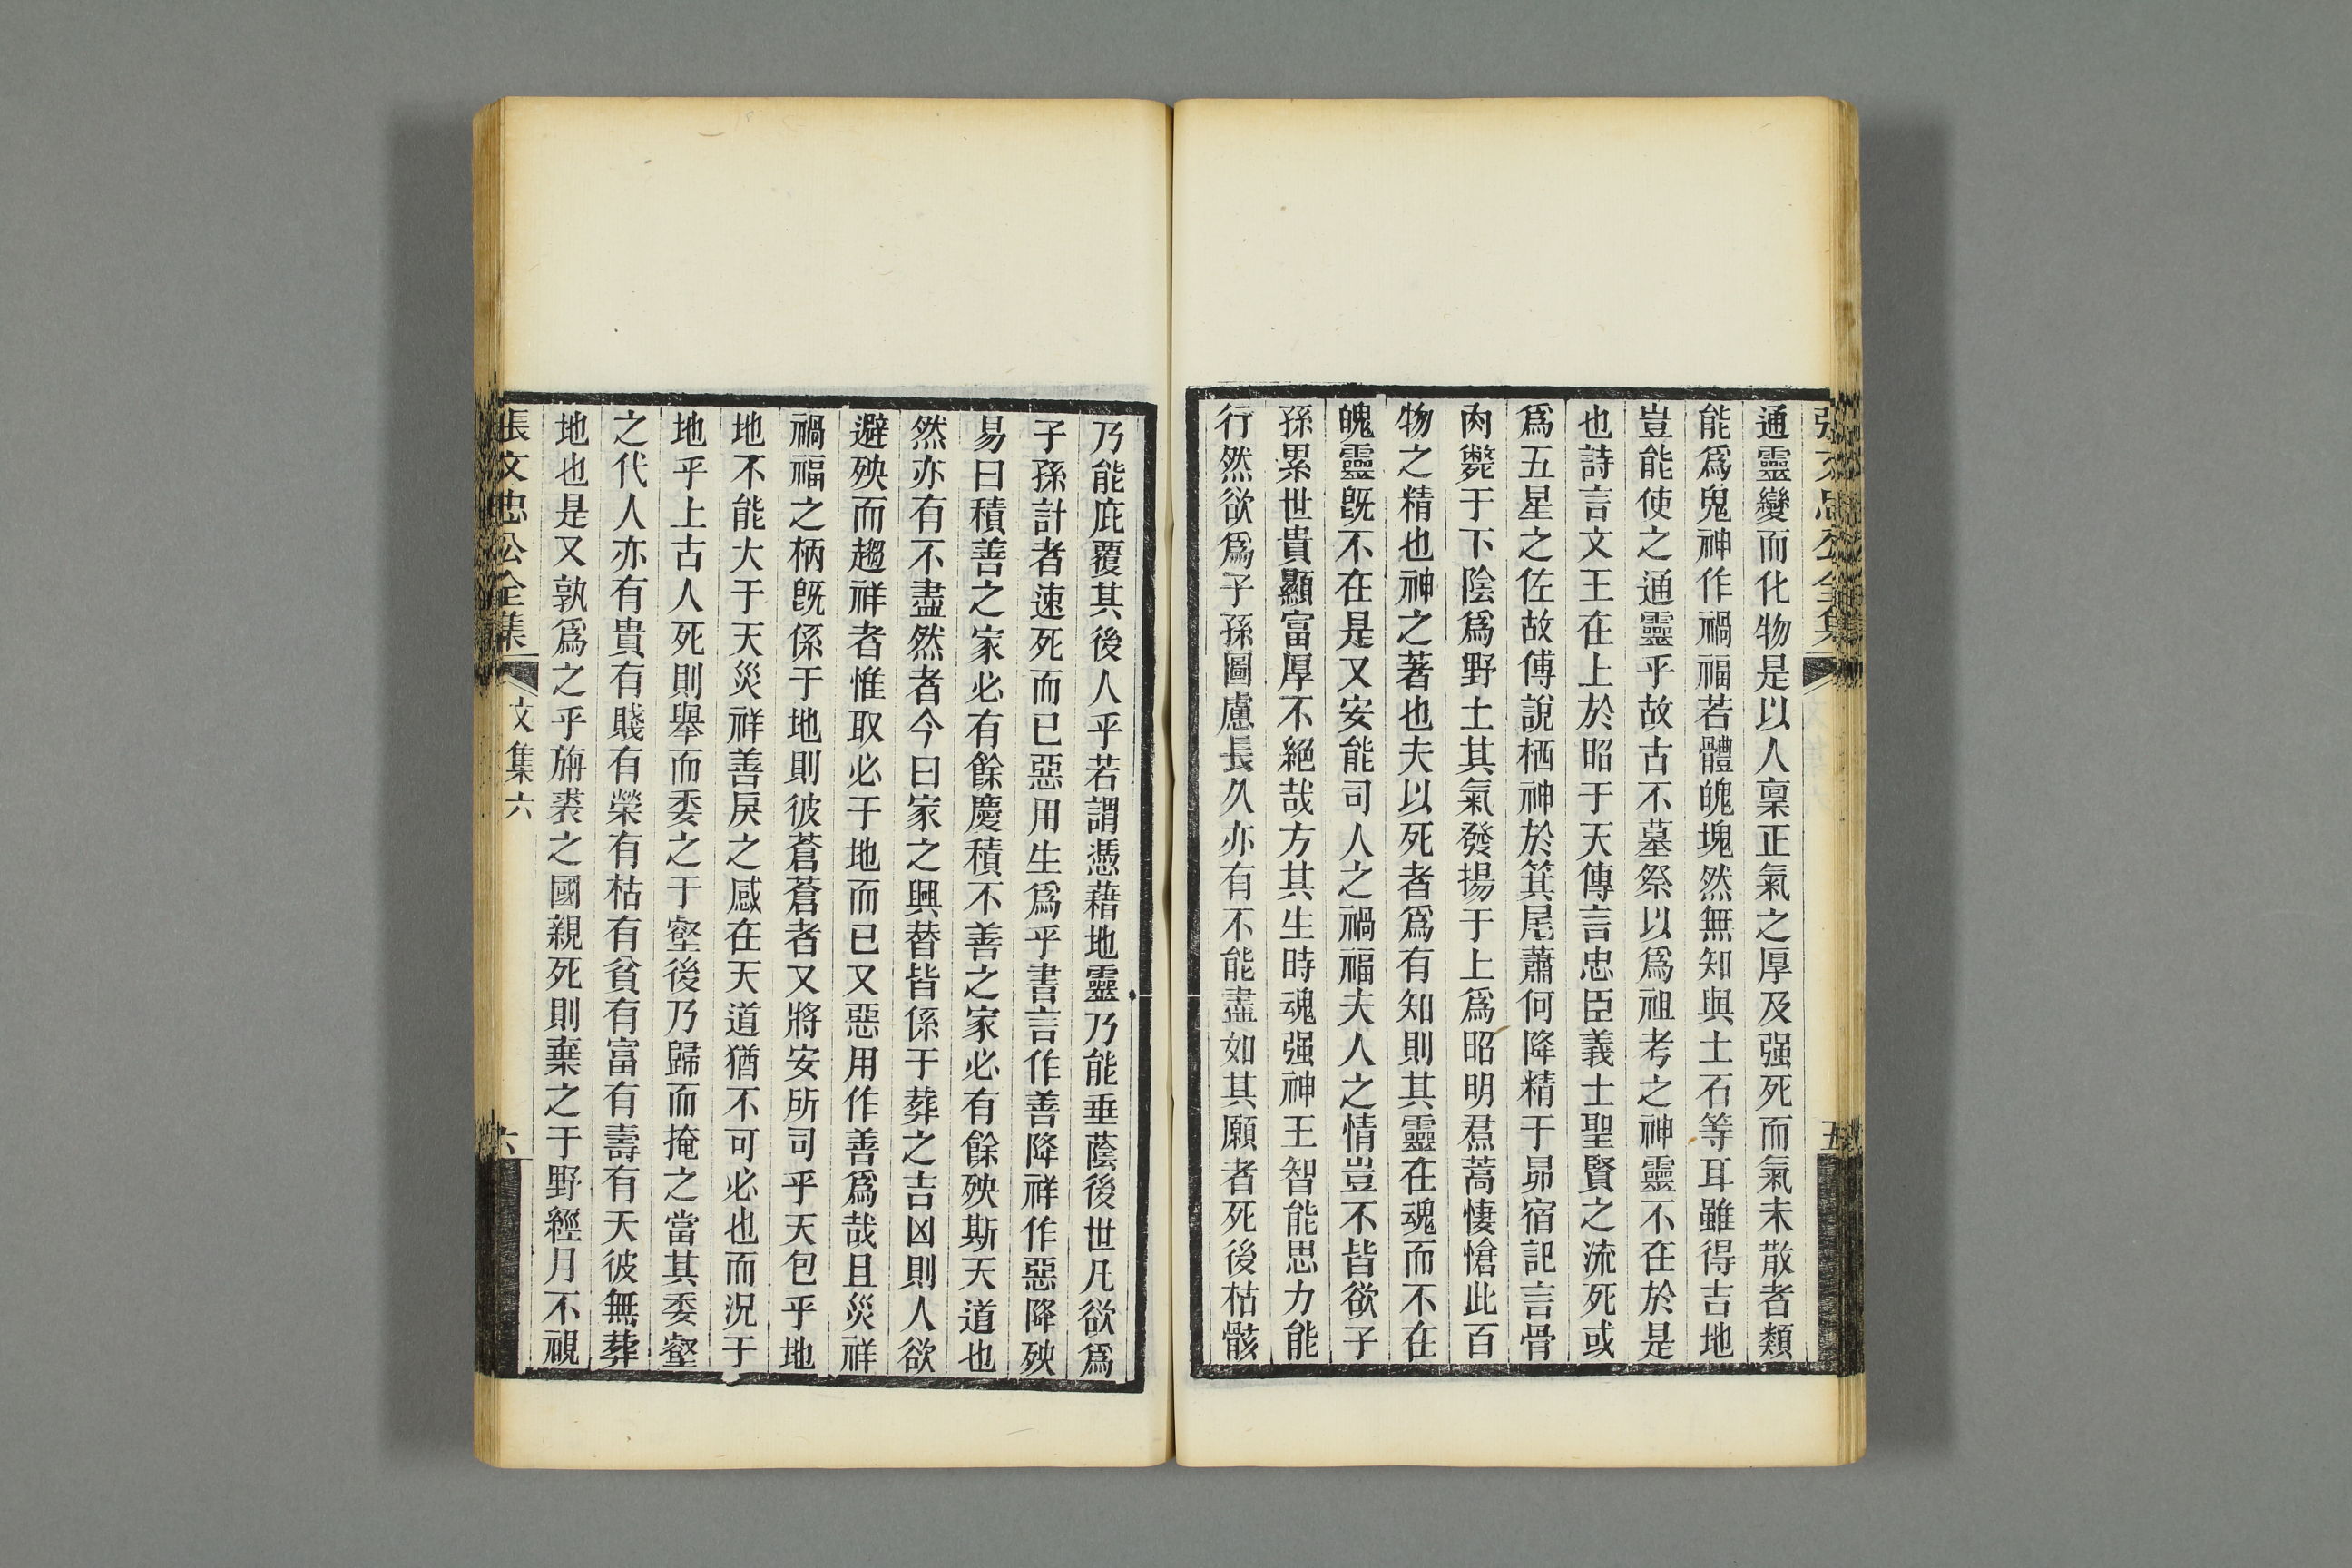 張文忠公全集
五
通靈變而化物是以人稟正氣之厚及强死而氣未散者類
能爲鬼神作禍福若體魄塊然無知與土石等耳雖得吉地
豈能使之通靈乎故古不墓祭以爲祖考之神靈不在於是
也詩言文王在上於昭于天傳言忠臣義士聖賢之流死或
爲五星之佐故傅說栖神於箕尾蕭何降精于昴宿記言骨
肉斃于下陰爲野土其氣發揚于上爲昭明焄蒿悽愴此百
物之精也神之著也夫以死者爲有知則其靈在魂而不在
魄靈既不在是又安能司人之禍福夫人之情豈不皆欲子
孫累世貴顯富厚不絕哉方其生時魂强神王智能思力能
行然欲爲子孫圖慮長久亦有不能盡如其願者死後枯骸
乃能庇覆其後人乎若謂憑藉地靈乃能垂蔭後世凡欲爲
子孫計者速死而已惡用生爲乎書言作善降祥作惡降殃
易曰積善之家必有餘慶積不善之家必有餘殃斯天道也
然亦有不盡然者今曰家之興替皆係于葬之吉凶則人欲
避殃而趨祥者惟取必于地而已又惡用作善爲哉且災祥
禍福之柄既係于地則彼蒼蒼者又將安所司乎天包乎地
地不能大于天災祥善戾之感在天道猶不可必也而況于
地乎上古人死則舉而委之于壑後乃歸而掩之當其委壑
之代人亦有貴有賤有榮有枯有貧有富有壽有夭彼無葬
地也是又孰爲之乎旃裘之國親死則棄之于野經月不視
張文忠公全集
文集六
六